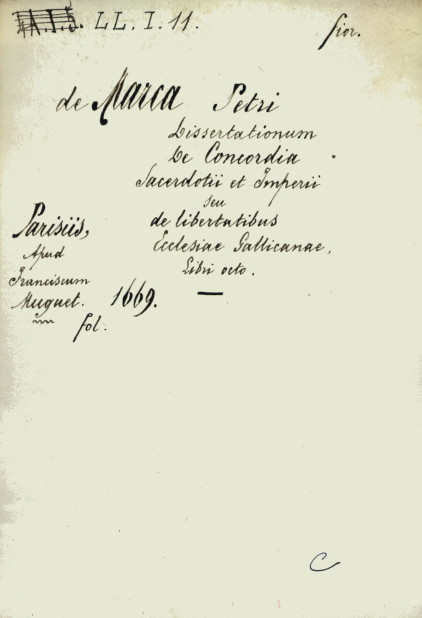 LL. I. 11.
de Marca Petri
Dissertationum
De Concordia
Sacerdotii et Imperii
seu
de libertatibus
Ecclesiae Gallicanae,
Libri octo.
Parisiis,
Apud
Franciscum
Muguet. 1669.
fol.
C